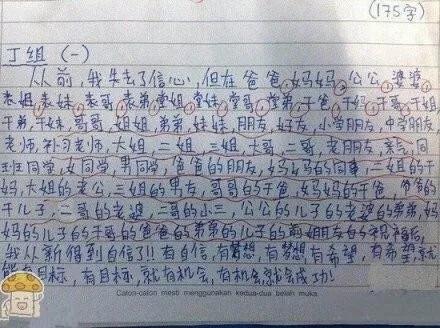 (175字)
丁组 (一)
从前,我失去了信心,但在爸爸,妈妈,公公,婆婆,
表姐,表妹,表哥,表弟,堂姐,堂妹,堂哥,堂弟,干爸,干妈,干哥,干姐
干弟,干妹,哥哥,姐姐,弟弟,妹妹,朋友,好友,小学朋友,中学朋友
老师,补习老师,大姐,二姐,三姐,大哥,二哥,老朋友,亲戚,同
班同学,女同学,男同学,爸爸的朋友,妈妈的同事,二姐的干
妈,大姐的老公,三姐的男友,哥哥的干爸,妈妈的干爸,爸爸的
干儿子,二哥的老婆,二哥的小三,公公的儿子的老婆的弟弟,妈
妈的儿子的干哥的爸爸的弟弟的儿子的前姐朋友的祝福后,
我从新得到自信了!!有自信,有梦想,有梦想,有希望,有希望,就
有目标,有目标,就有机会,有机会,就会成功!
Calon-calon mesti menggunakan kedua-dua belah muka